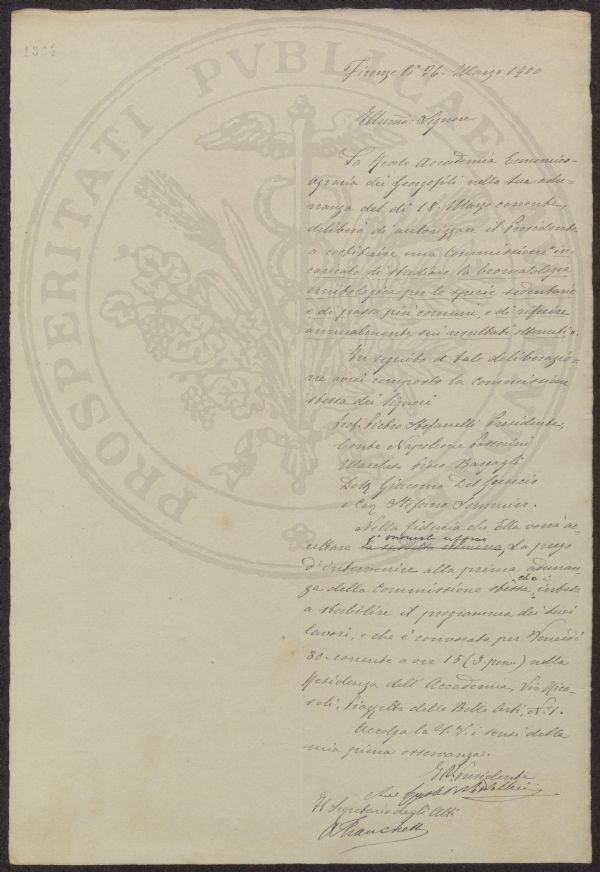 1804
PROSPERITATI PVBLICAE
Firenze lì 26. Marzo 1900
Illmo: Signore
La Reale Accademia Economico-
agraria dei Georgofili nella sua adu-
nanza del dì 18. Marzo corrente,
deliberò di autorizzare il Presidente
a costituire una Commissione "in-
caricata di studiare la bromatologia
ornitologica per le specie sedentarie
e di passo più comuni, e di riferire
annualmente sui resultati ottenuti".
In seguito a tale deliberazio-
ne avrei composto la Commissione
stessa dei Signori
Prof. Pietro Stefanelli Presidente,
Conte Napoleone Passerini
Marchese Piero Bargagli
Dott. Giacomo Del Guercio
e Cav. Stefano Sommier.
Nella fiducia che Ella vorrà ac-
cettare l'onorevole ufficio
la suddetta nomina, La prego
d'intervenire alla prima adunan-
za della Commissione stessa, che è intesa
a stabilire il programma dei suoi
lavori, e che è convocata per Venerdì
30. corrente a ore 15 (3. pom.) nella
Residenza dell'Accademia, Via Rica-
soli, Piazzetta delle Belle Arti, N. 1.
Accolga la S. V. i sensi della
mia piena osservanza.
Il Presidente
Il Segretario degli Atti
A Franchetti